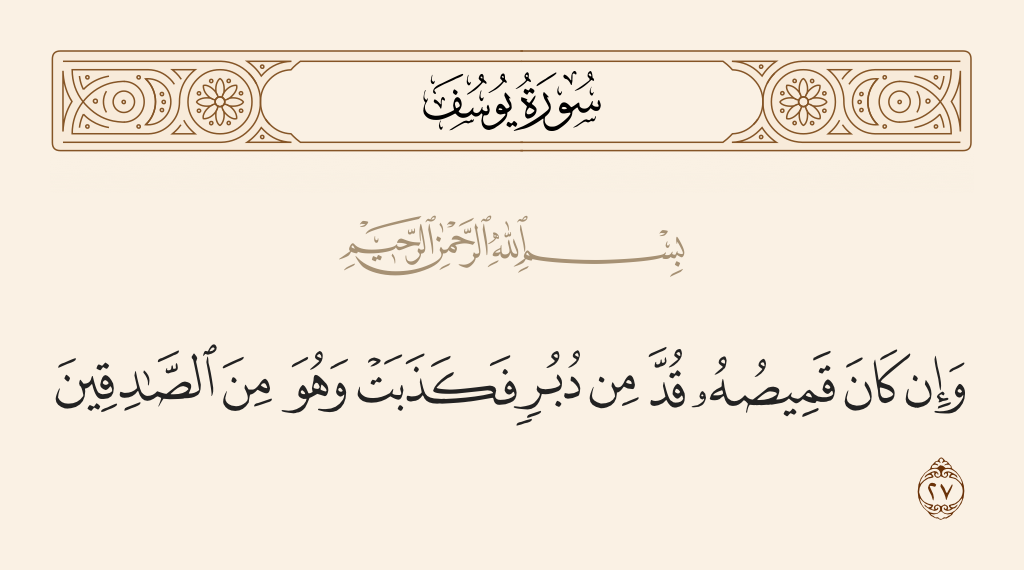 سُورَةُ يُوسُفَ
بِسْمِ ٱللَّهِ ٱلرَّحْمَٰنِ ٱلرَّحِيمِ
وَإِن كَانَ قَمِيصُهُۥ قُدَّ مِن دُبُرٍ فَكَذَبَتْ وَهُوَ مِنَ ٱلصَّٰدِقِينَ
٢٧